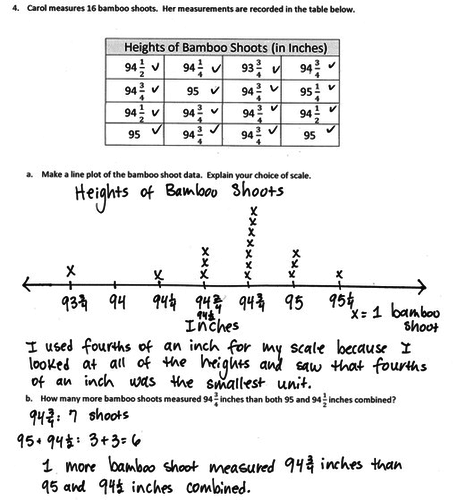 4. Carol measures 16 bamboo shoots. Her measurements are recorded in the table below.
Heights of Bamboo Shoots (in Inches)
94 1/2 ✓ 94 1/4 ✓ 93 3/4 ✓ 94 3/4 ✓
94 3/4 ✓ 95 ✓ 94 3/4 ✓ 95 1/4 ✓
94 1/2 ✓ 94 3/4 ✓ 94 3/4 ✓ 94 1/2 ✓
95 ✓ 94 3/4 ✓ 94 3/4 ✓ 95 ✓
a. Make a line plot of the bamboo shoot data. Explain your choice of scale.
Heights of Bamboo Shoots
x
x
x
x
x x x
x x x
x x x x x x
93 3/4 94 94 1/4 94 2/4 94 3/4 95 95 1/4
94 1/2
x = 1 bamboo
shoot
Inches
I used fourths of an inch for my scale because I
looked at all of the heights and saw that fourths
of an inch was the smallest unit.
b. How many more bamboo shoots measured 94 3/4 inches than both 95 and 94 1/2 inches combined?
94 3/4: 7 shoots
95 + 94 1/2: 3+3=6
1 more bamboo shoot measured 94 3/4 inches than
95 and 94 1/2 inches combined.